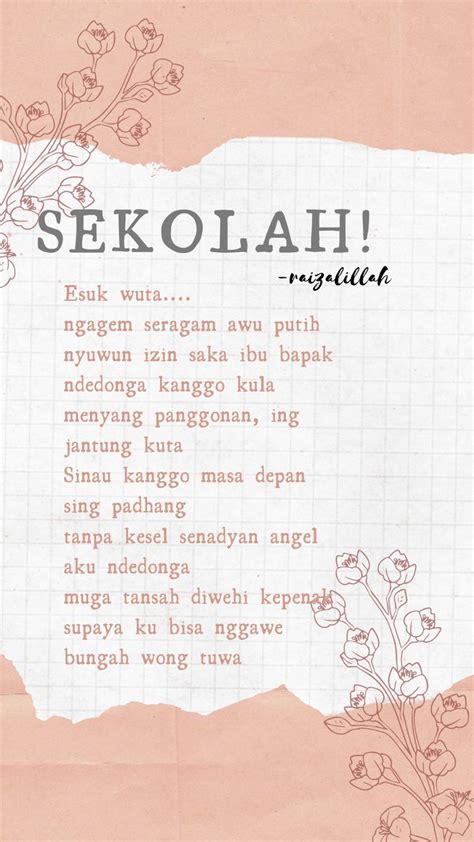 SEKOLAH!
-raizalillah
Esuk wuta....
ngagem seragam awu putih
nyuwun izin saka ibu bapak
ndedonga kanggo kula
menyang panggonan, ing
jantung kuta
Sinau kanggo masa depan
sing padhang
tanpa kesel senadyan angel
aku ndedonga
muga tansah diwehi kepenak
supaya ku bisa nggawe
bungah wong tuwa